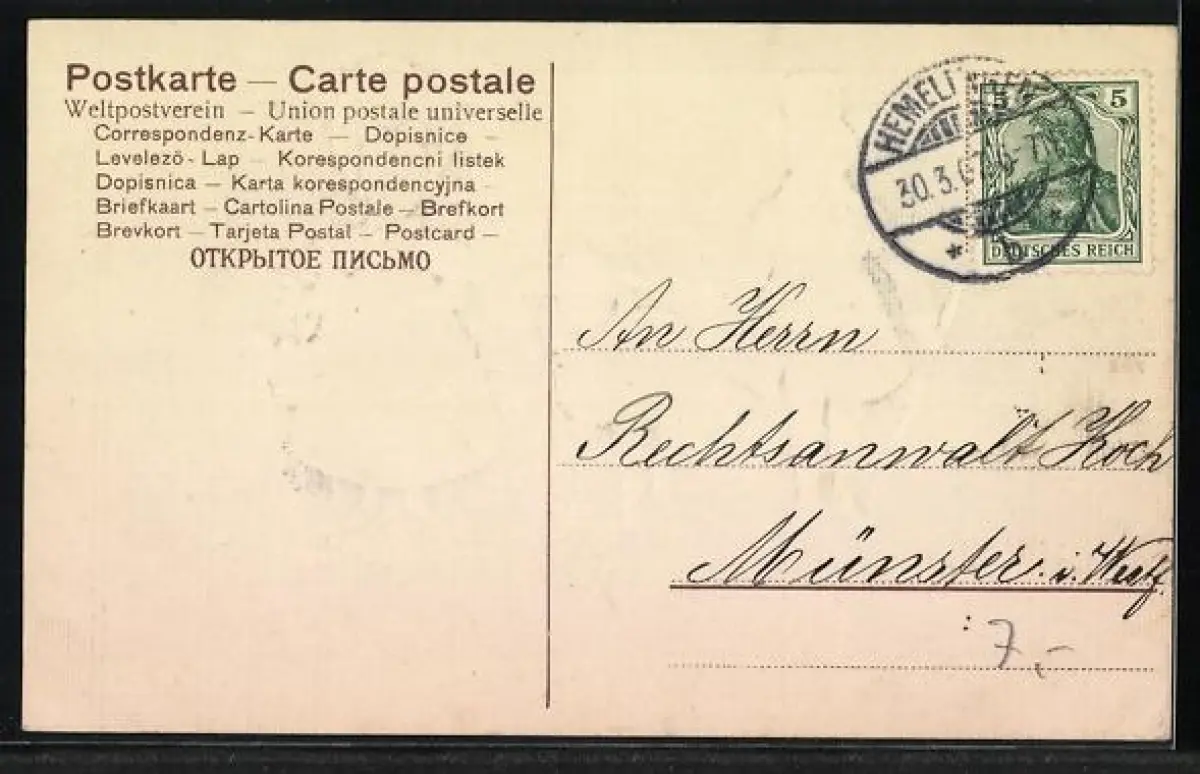 Postkarte — Carte postale
Weltpostverein — Union postale universelle
Correspondenz-Karte — Dopisnice —
Levelező-Lap — Korespondencni listek
Dopisnica — Karta korespondencyjna
Briefkaart — Cartolina Postale — Brefkort
Brevkort — Tarjeta Postal — Postcard —
ОТКРЫТОЕ ПИСЬМО
5 5
30.3.
b
DEUTSCHES REICH
An Herrn
Rechtsanwalt Koch
Münster i. Westf.
7,-